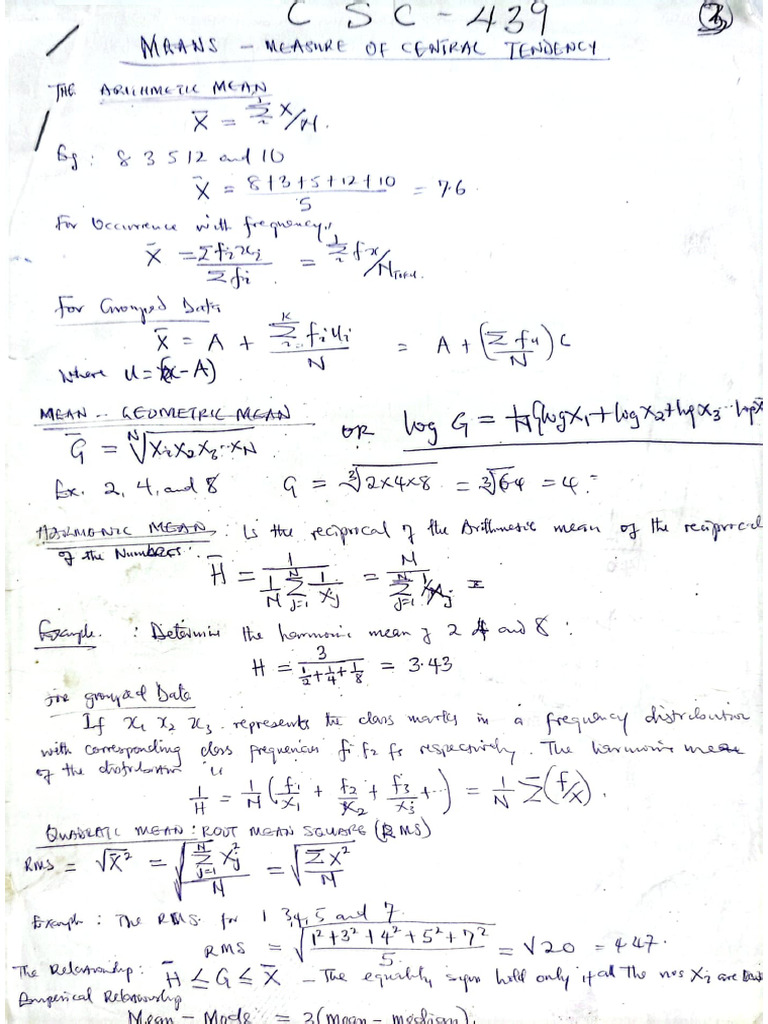 CSC-439
3
MEANS - MEASURE OF CENTRAL TENDENCY
THE ARITHMETIC MEAN
X̄ = Σ X/N.
Eg: 8 3 5 12 and 10
X̄ = (8+3+5+12+10)/5 = 7.6.
For Occurrence with frequency,
X̄ = Σfᵢxᵢ/Σfᵢ = Σ fx/N
For Grouped Data
X̄ = A + Σfᵢuᵢ/N = A + (Σfu/N) C
where u = (x-A)
MEAN.. GEOMETRIC MEAN
Ḡ = ᴺ√X₁X₂X₃..X_N OR log G = 1/N {logX₁+logX₂+logX₃...logX
Ex. 2, 4, and 8 G = ³√2x4x8 = ³√64 = 4.
HARMONIC MEAN: Is the reciprocal of the Arithmetic mean of the reciprocal
of the Numbers:
H̄ = 1/(1/N Σ 1/Xj) = N/(Σ 1/Xj) =
Example. : Determine the harmonic mean of 2 4 and 8:
H = 3/(1/2+1/4+1/8) = 3.43
For grouped Data
If x₁ x₂ x₃ represents the class marks in a frequency distribution
with corresponding class frequencies f₁ f₂ f₃ respectively. The harmonic mean
of the distribution is
1/H = 1/N (f₁/x₁ + f₂/x₂ + f₃/x₃ + ..) = 1/N Σ(f/x).
QUADRATIC MEAN: ROOT MEAN SQUARE (RMS)
RMS = √X̄² = √(Σ Xj²/N) = √(ΣX²/N)
Example: The RMS. for 1 3,4,5 and 7.
RMS = √((1²+3²+4²+5²+7²)/5.) = √20 = 4.47.
The Relationship: H̄ ≤ G ≤ X̄ - The equality sign hold only if all the nos Xi are
Emperical Relationship
Mean - Mode = 3(mean - median).